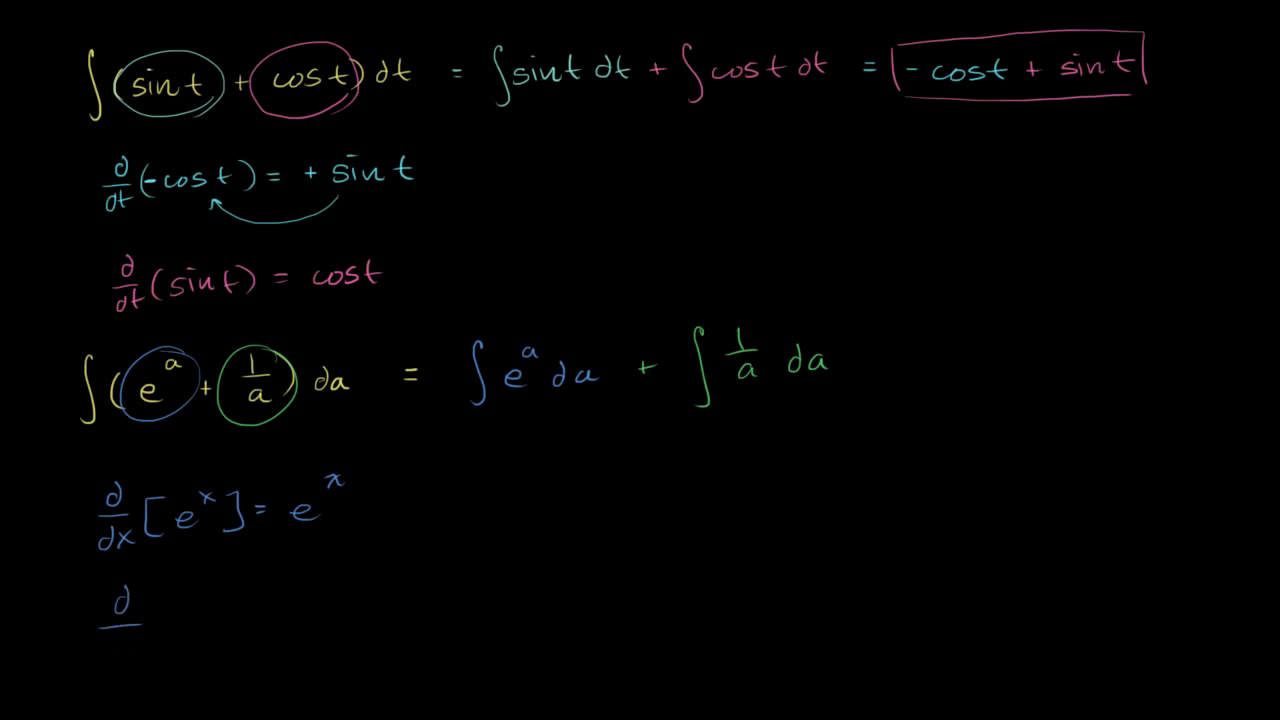 ∫ (sin t + cos t) dt = ∫ sin t dt + ∫ cos t dt = - cos t + sin t
d/dt (-cos t) = + sin t
d/dt (sin t) = cos t
∫ (e^a + 1/a) da = ∫ e^a da + ∫ 1/a da
d/dx [e^x] = e^x
d